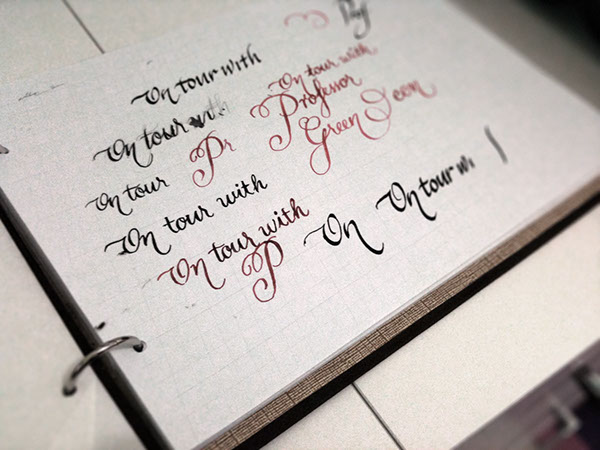 Prof
On tour with
On tour with
Pr
On tour with
Professor
Green
On tour
On tour with
On tour with
P
On
On tour wi